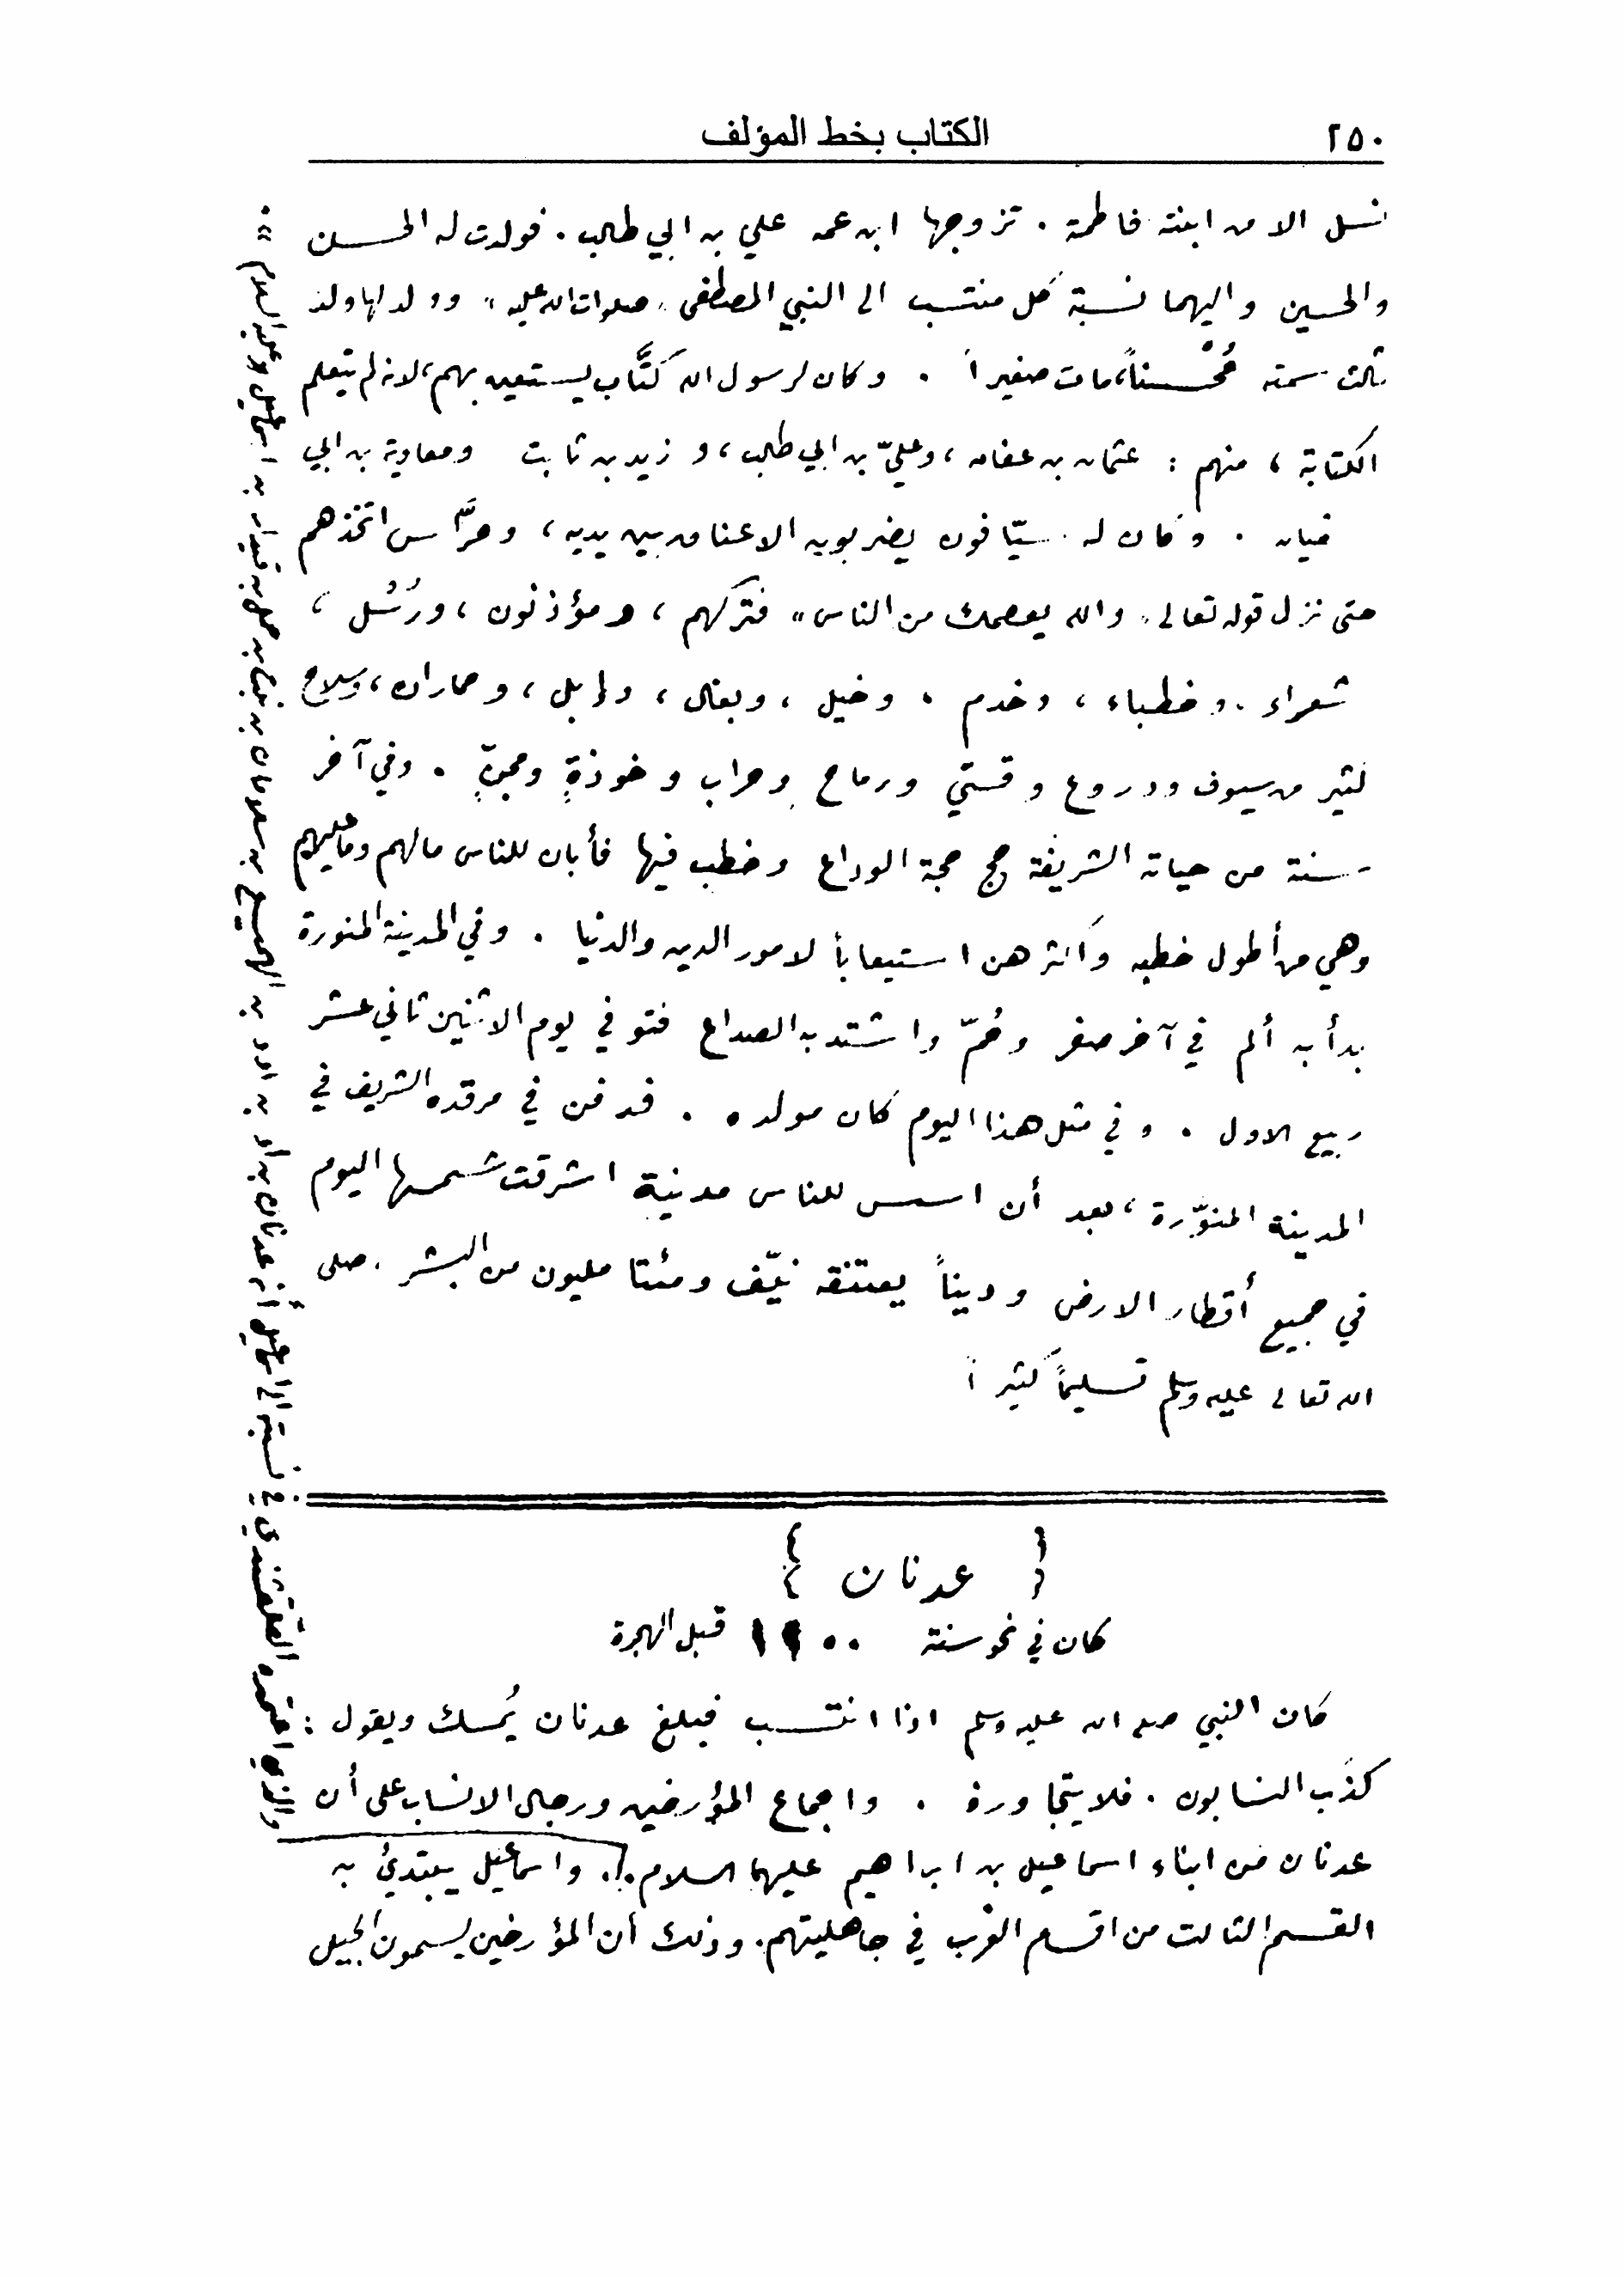 ٢٥٠
الكتاب بخط المؤلف
نسل الا من ابنته فاطمة . تزوجها ابن عمه علي بن ابي طالب . فولدت له الحسن
والحسين واليهما نسبة كل منتسب الى النبي المصطفى "صلوات الله عليه" وولد لها ولد
ثالث سمته مُحْسناً، مات صغيراً . وكان لرسول الله كتَّاب يستعين بهم، لانه لم يتعلم
الكتابة ، منهم : عثمان بن عفان ، وعليّ بن ابي طالب ، و زيد بن ثابت ومعاوية بن ابي
فيان . وكان له سيّافون يضربون الاعناق بين يديه ، وحرَّاس اتخذهم
حتى نزل قوله تعالى "والله يعصمك من الناس" فتركهم ، ومؤذنون ، ورُسُل ،
شعراء . وخطباء ، وخدم . وخيل ، وبغال ، وابل ، وحماران ، وسلاح
كثير من سيوف ودروع وقسيّ ورماح وحراب وخوذةٍ ومجنّةٍ . وفي آخر
سنة من حياته الشريفة حج حجة الوداع وخطب فيها فأبان للناس مالهم وما عليهم
وهي من أطول خطبه واكثرهن استيعاباً لامور الدين والدنيا . وفي المدينة المنورة
بدأ به ألم في آخر صفر وحُمّ واشتد به الصداع فتوفي يوم الاثنين ثاني عشر
ربيع الاول . وفي مثل هذا اليوم كان مولده . فدفن في مرقده الشريف في
المدينة المنوّرة ، بعد أن اسس للناس مدنية اشرقت شمسها اليوم
في جميع أقطار الارض وديناً يعتنقه نيّف ومئتا مليون من البشر . صلى
الله تعالى عليه وسلم تسليماً كثيراً
{ عدنان }
كان في نحو سنة ٠٠ قبل الهجرة
كان النبي صلى الله عليه وسلم اذا انتسب فبلغ عدنان يُمسك ويقول :
كذَب النسابون . فلا يتجاوزه . واجماع المؤرخين ورجال الانساب على أن
عدنان من ابناء اسماعيل بن ابراهيم عليهما السلام . واسماعيل يبتدئ به
القسم الثالث من اقسام العرب في جاهليتهم . وذلك ان المؤرخين يسمون الجيل
والذي اعتمده القلقشندي في نسبته الى اسماعيل أنه عدنان بن أد بن ادد بن الهميسع بن سلامان بن نبت بن حمل بن قيدار بن اسماعيل عليه السلام